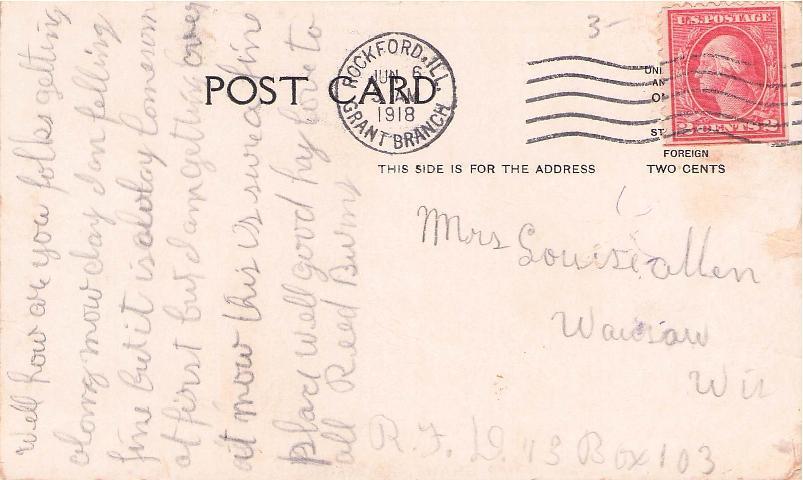 Well how are you folks getting
along now day I am felling
fine but it is a lonesom
at first but I am getting over
it now this is swre a fine
place well good by love to
all Reed Burns
3-
POST CARD
ROCKFORD, ILL.
JUN 6
AM
1918
GRANT BRANCH
U.S. POSTAGE
2 CENTS 2
THIS SIDE IS FOR THE ADDRESS
FOREIGN
TWO CENTS
Mrs Louise Allen
Wausau
Wis
R.F.D. 3 Box 103